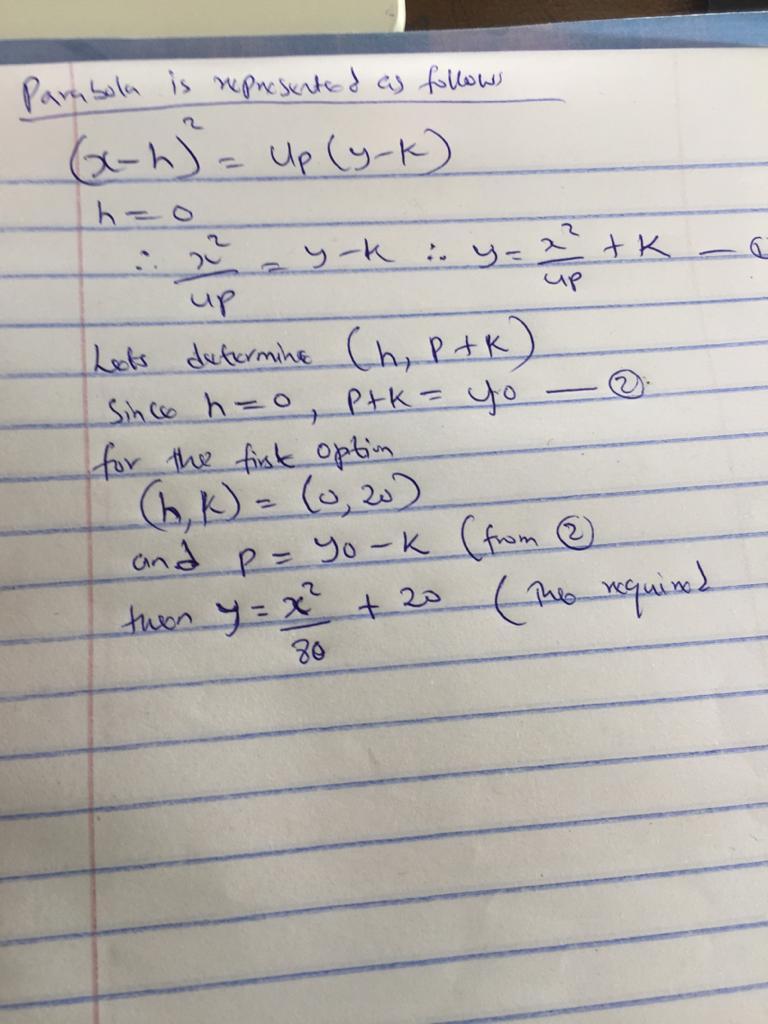 Parabola is represented as follows
(x-h)² = 4p(y-k)
h = 0
∴ x²/4p = y-k ∴ y = x²/4p + k — ①
Lets determine (h, p+k)
Since h=0, p+k = y0 — ②
for the first option
(h,k) = (0,20)
and p = y0-k (from ②)
then y = x²/80 + 20 (The required